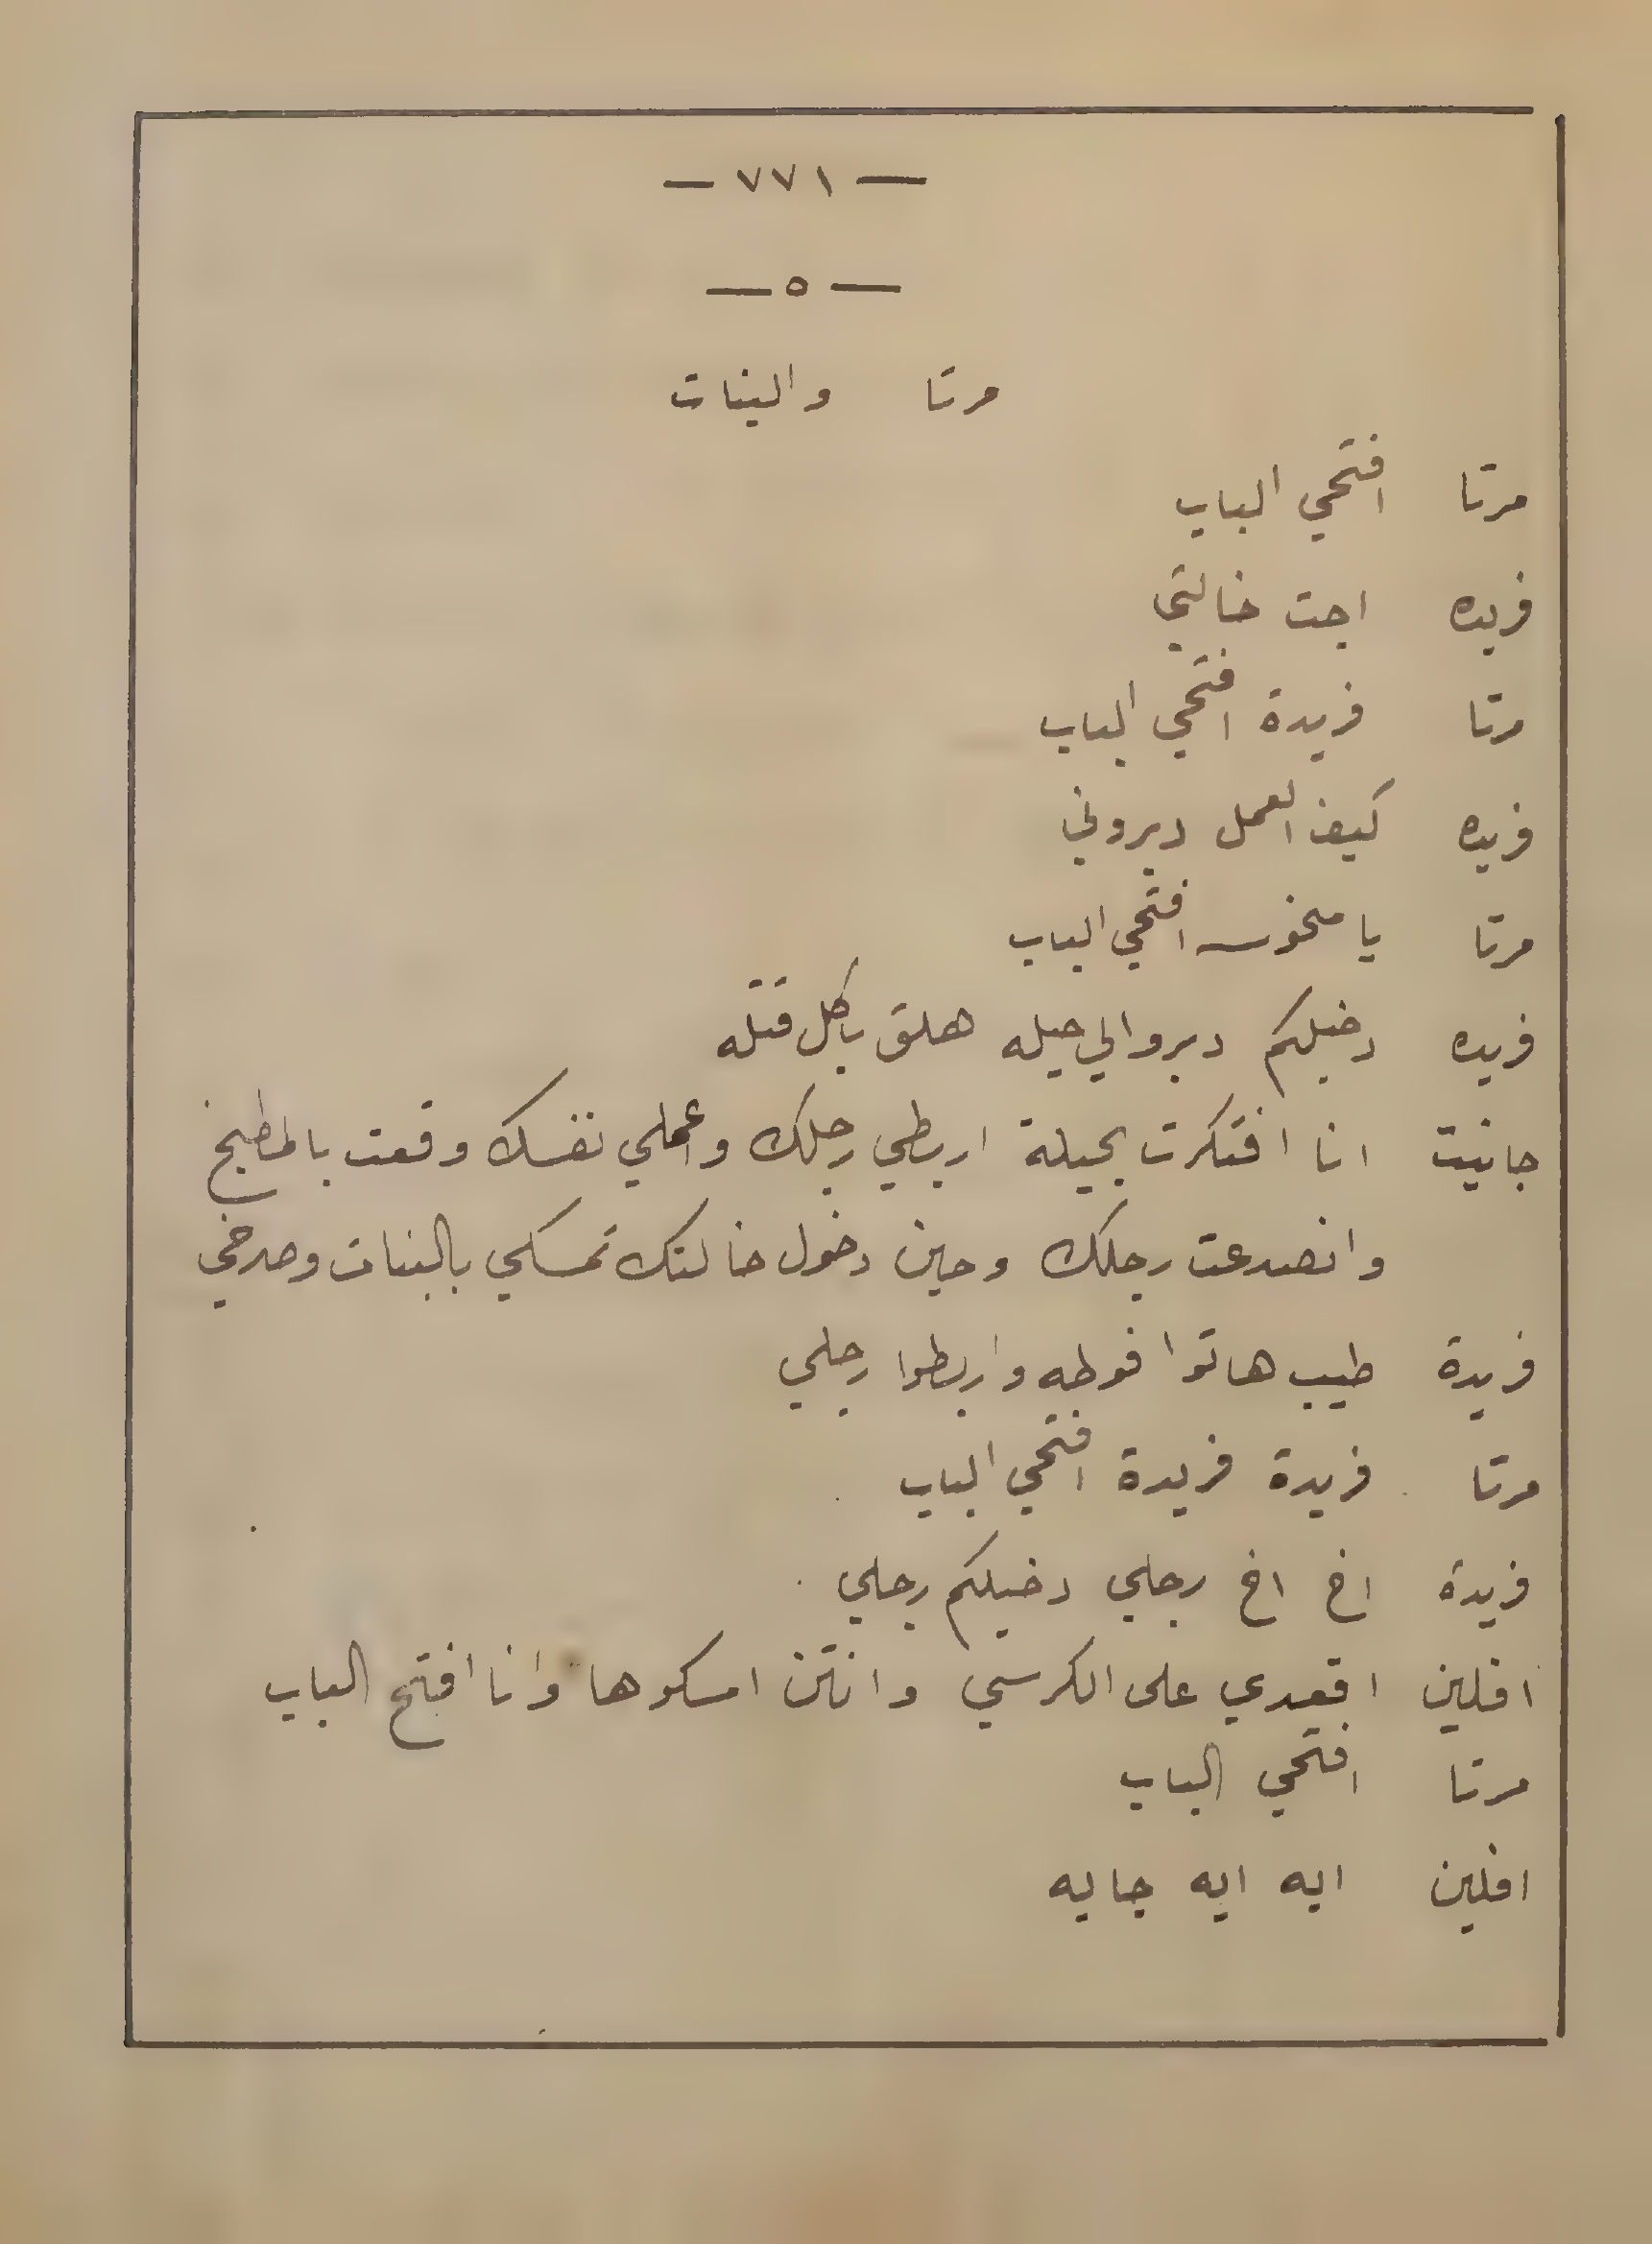 — ٧٧١ —
— ٥ —
مرتا والبنات
مرتا افتحي الباب
فريده اجت خالتي
مرتا فريدة افتحي الباب
فريده كيف العمل دبروني
مرتا يا منحوسه افتحي الباب
فريده دخيلكم دبروالي حيله هلق باكل قتله
جانيت انا افتكرت بحيلة اربطي رجلك واعملي نفسك وقعت بالمطبخ
وانصدعت رجلك وحين دخول خالتك تمسكي بالبنات وصرخي
فريدة طيب هاتوا فوطه واربطوا رجلي
مرتا فريدة فريدة افتحي الباب
فريدة اخ اخ رجلي دخيلكم رجلي
افلين اقعدي على الكرسي وانتن امسكوها وانا افتح الباب
مرتا افتحي الباب
افلين ايه ايه جايه